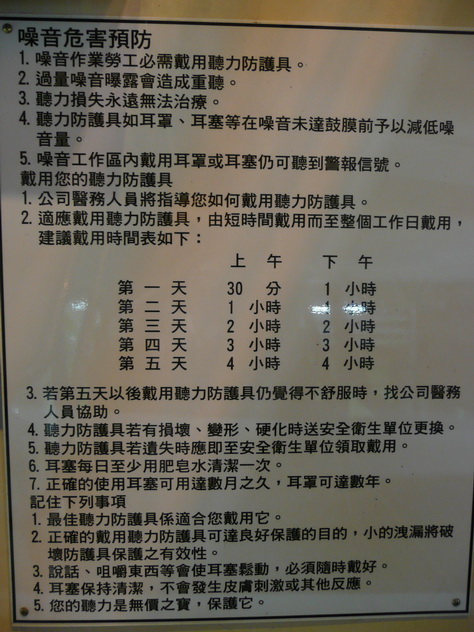 噪音危害預防
1. 噪音作業勞工必需戴用聽力防護具。
2. 過量噪音曝露會造成重聽。
3. 聽力損失永遠無法治療。
4. 聽力防護具如耳罩、耳塞等在噪音未達鼓膜前予以減低噪
音量。
5. 噪音工作區內戴用耳罩或耳塞仍可聽到警報信號。
戴用您的聽力防護具
1. 公司醫務人員將指導您如何戴用聽力防護具。
2. 適應戴用聽力防護具，由短時間戴用而至整個工作日戴用，
建議戴用時間表如下：
上 午 下 午
第 一 天 30 分 1 小時
第 二 天 1 小時 1 小時
第 三 天 2 小時 2 小時
第 四 天 3 小時 3 小時
第 五 天 4 小時 4 小時
3. 若第五天以後戴用聽力防護具仍覺得不舒服時，找公司醫務
人員協助。
4. 聽力防護具若有損壞、變形、硬化時送安全衛生單位更換。
5. 聽力防護具若遺失時應即至安全衛生單位領取戴用。
6. 耳塞每日至少用肥皂水清潔一次。
7. 正確的使用耳塞可用達數月之久，耳罩可達數年。
記住下列事項
1. 最佳聽力防護具係適合您戴用它。
2. 正確的戴用聽力防護具可達良好保護的目的，小的洩漏將破
壞防護具保護之有效性。
3. 說話、咀嚼東西等會使耳塞鬆動，必須隨時戴好。
4. 耳塞保持清潔，不會發生皮膚刺激或其他反應。
5. 您的聽力是無價之寶，保護它。